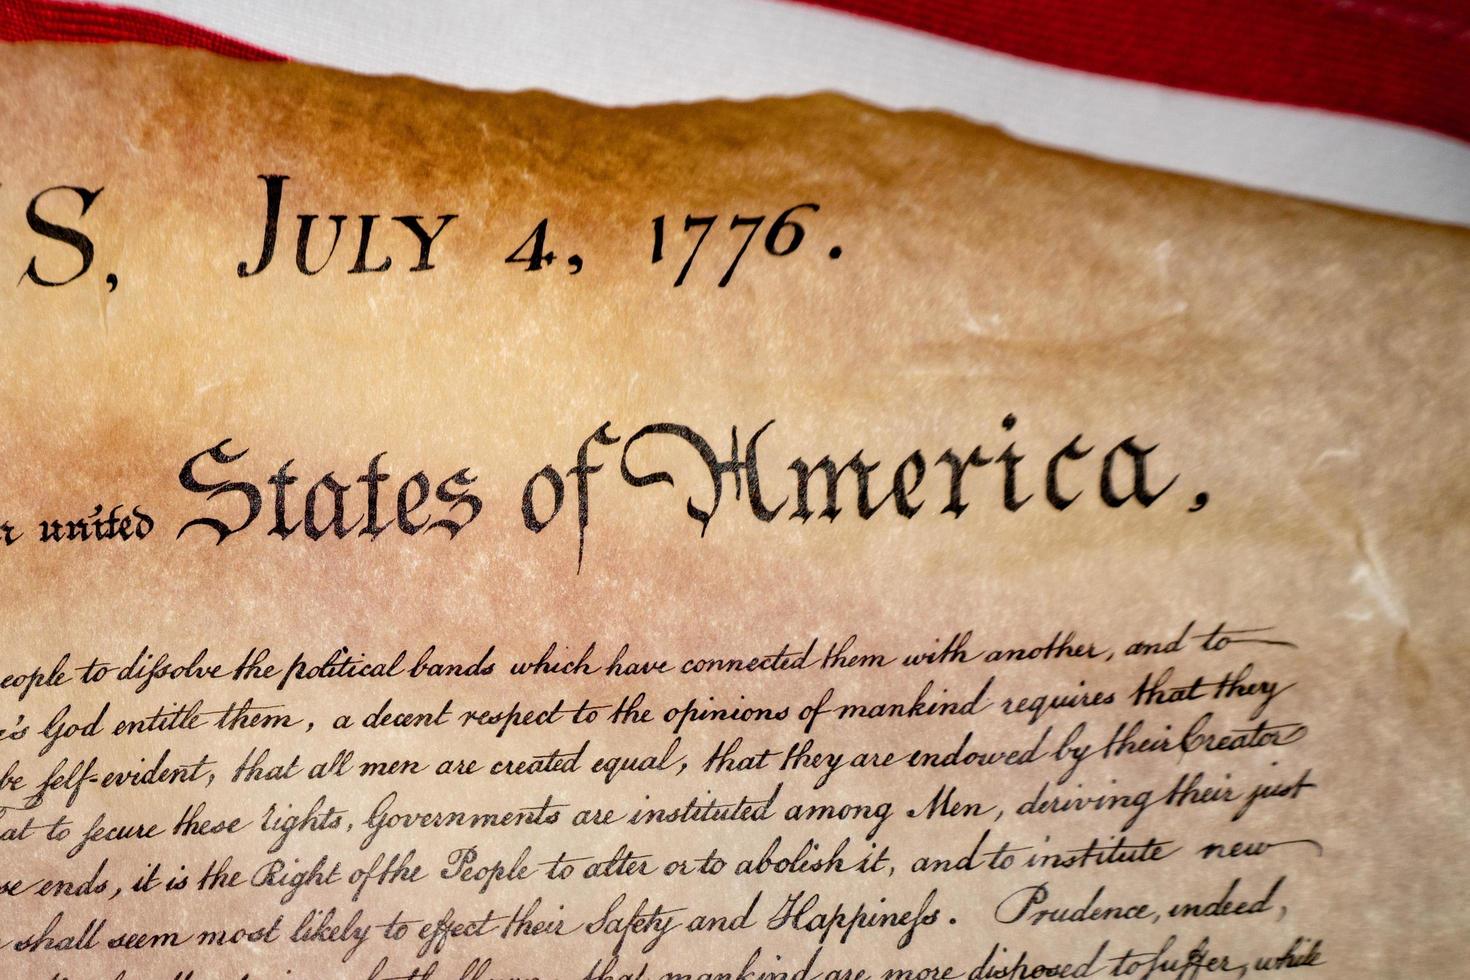 S, JULY 4, 1776.
united States of America,
eople to diſsolve the political bands which have connected them with another, and to
God entitle them, a decent respect to the opinions of mankind requires that they
be ſelf-evident, that all men are created equal, that they are endowed by their Creator
at to ſecure these rights, Governments are instituted among Men, deriving their just
se ends, it is the Right of the People to alter or to abolish it, and to institute new
shall seem most likely to effect their Safety and Happineſs. Prudence, indeed,
that mankind are more disposed to ſuffer, while